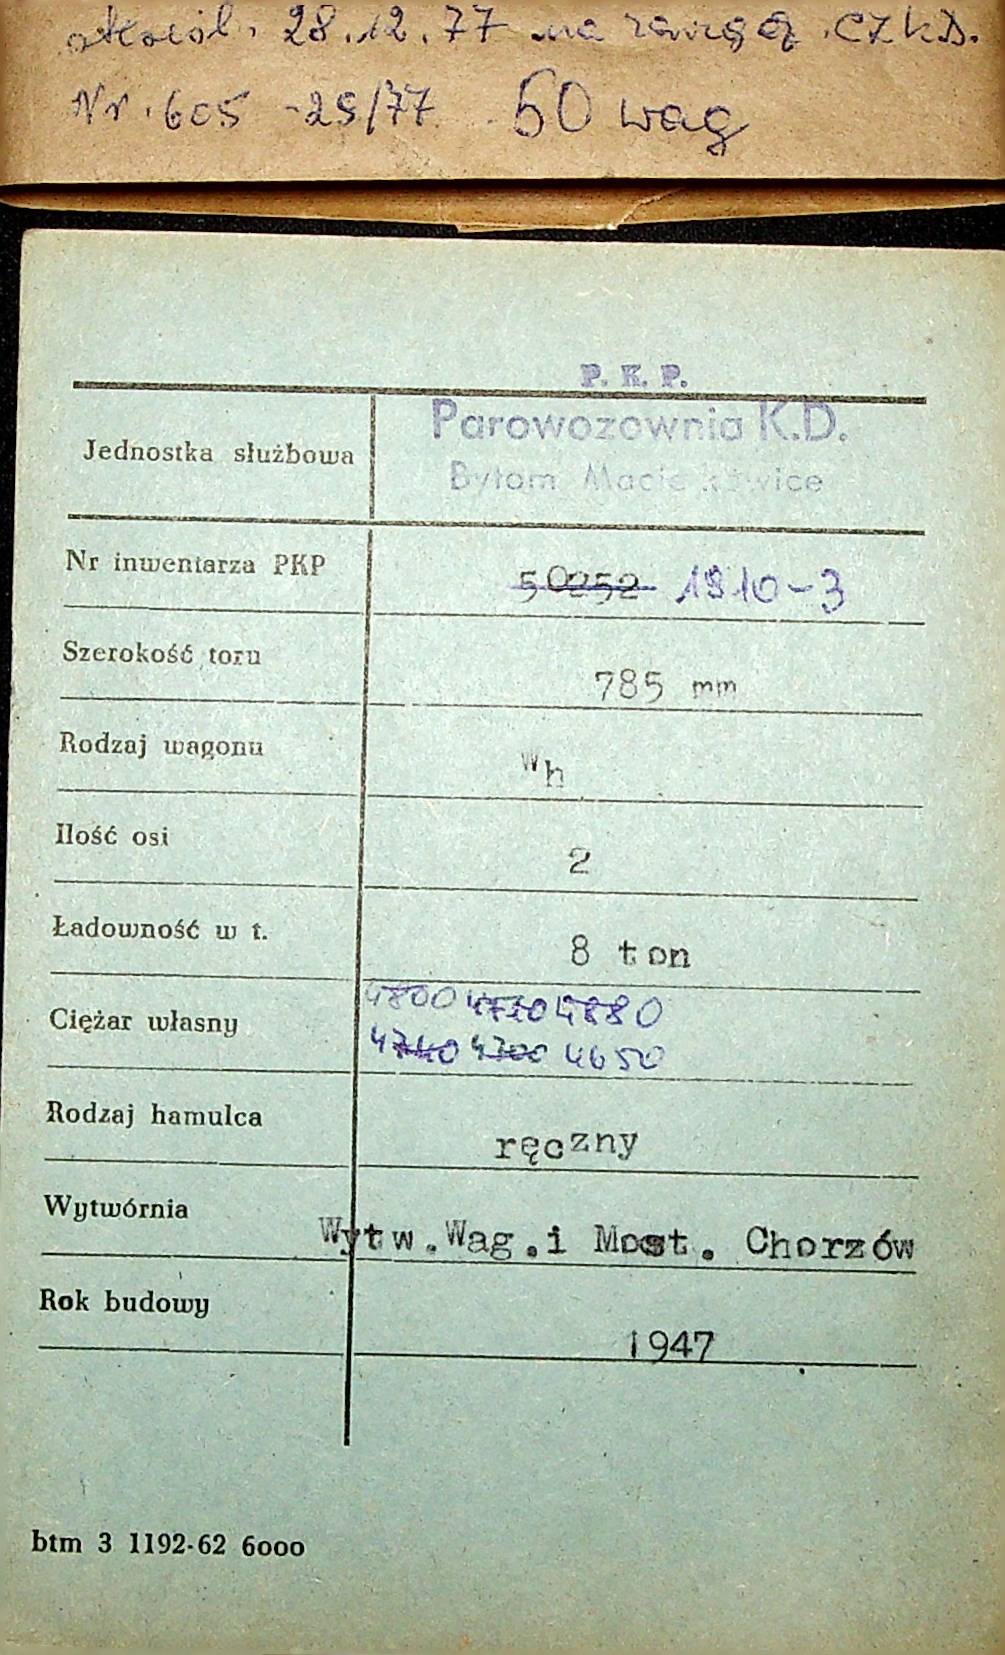 28.12.77 na CZKD.
Nr. 605 -29/77 50 wag
P. K. P.
Parowozownia K.D.
Bytom
Jednostka służbowa
Nr inwentarza PKP 50252 1910-3
Szerokość toru 785 mm
Rodzaj wagonu Wh
Ilość osi 2
Ładowność w t. 8 ton
4800 4880
Ciężar własny
4740 4700 4650
Rodzaj hamulca ręczny
Wytwórnia Wytw.Wag.i Most. Chorzów
Rok budowy 1947
btm 3 1192-62 6000